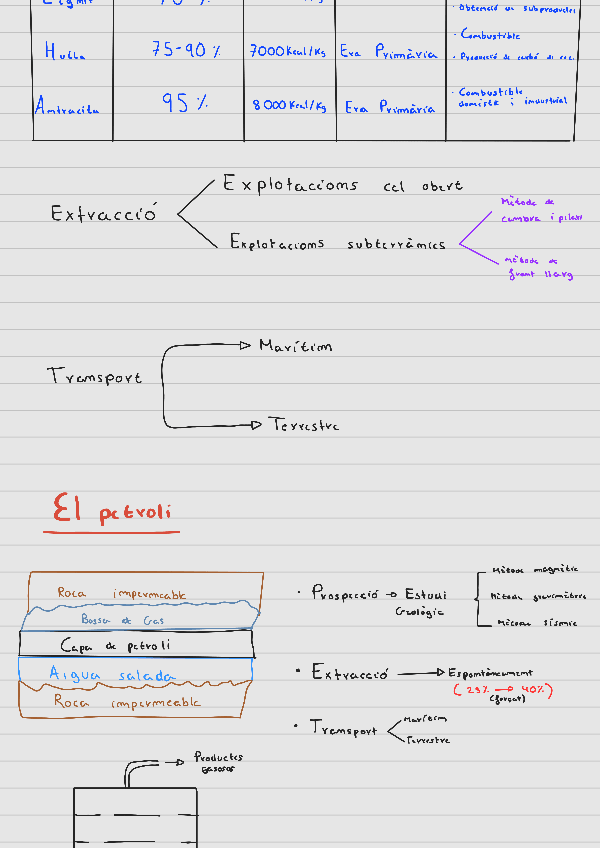 · Obtenció de subproductes
Hulla 75-90 % 7000 Kcal/Kg Era Primària · Combustible
· Producció de carbó de coc.
Antracita 95 % 8000 Kcal/Kg Era Primària · Combustible
domèstic i industrial
Extracció
Explotacions cel obert
Explotacions subterrànies
Mètode de
cambra i pilars
Mètode de
front llarg
Transport
Marítim
Terrestre
El petroli
Roca impermeable
Bossa de Gas
Capa de petroli
Aigua salada
Roca impermeable
· Prospecció → Estudi
Geològic
Mètode magnètic
Mètode gravimètric
Mètode sísmic
· Extracció → Espontàneament
(25% → 40%)
(forçat)
· Transport
Marítim
Terrestre
Productes
gasosos